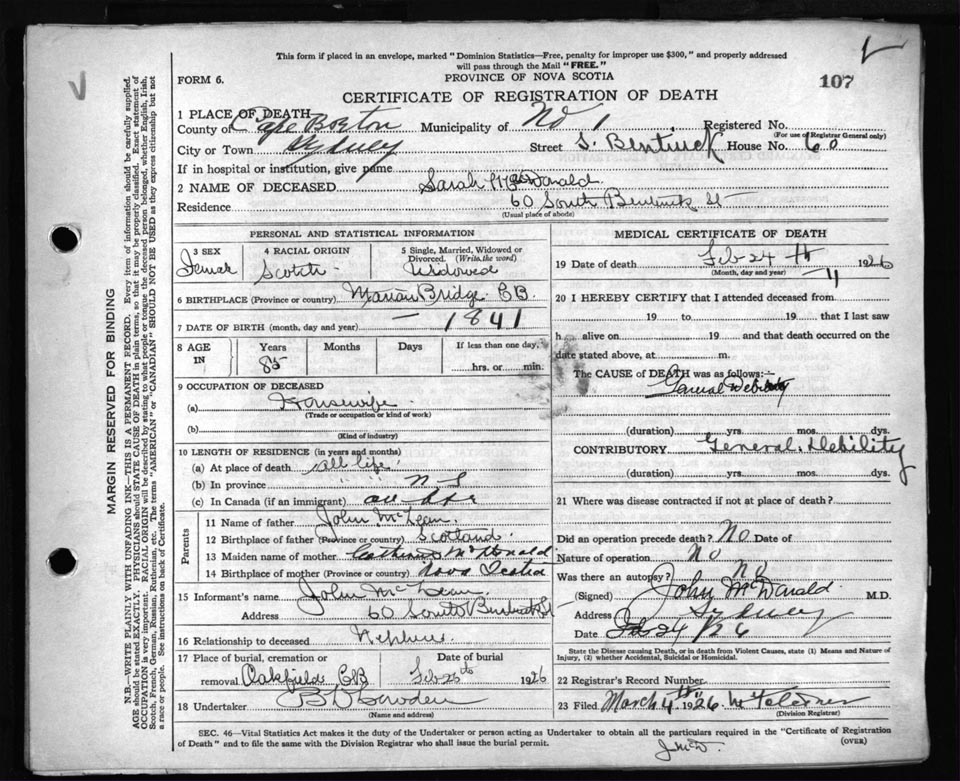 This form if placed in an envelope, marked "Dominion Statistics—Free, penalty for improper use $300," and properly addressed
will pass through the Mail "FREE."
FORM 6.
PROVINCE OF NOVA SCOTIA
107
CERTIFICATE OF REGISTRATION OF DEATH
1 PLACE OF DEATH
County of Cape Breton Municipality of No 1 Registered No.
(For use of Registrar General only)
City or Town Sydney Street S. Bentinck House No. 60
If in hospital or institution, give name
2 NAME OF DECEASED Sarah McDonald
Residence 60 South Bentinck St
(Usual place of abode)
PERSONAL AND STATISTICAL INFORMATION
3 SEX
Female
4 RACIAL ORIGIN
Scotch
5 Single, Married, Widowed or
Divorced. (Write the word)
Widowed
6 BIRTHPLACE (Province or country) Marian Bridge C B.
7 DATE OF BIRTH (month, day and year) — 1841
8 AGE IN Years Months Days If less than one day,
85 hrs. or min.
9 OCCUPATION OF DECEASED
(a) Housewife
(Trade or occupation or kind of work)
(b)
(Kind of industry)
10 LENGTH OF RESIDENCE (in years and months)
(a) At place of death all life
(b) In province " " N S
(c) In Canada (if an immigrant)
Parents
11 Name of father John McLean.
12 Birthplace of father (Province or country) Scotland
13 Maiden name of mother Catherine McDonald
14 Birthplace of mother (Province or country) Nova Scotia
15 Informant's name John McLean
Address 60 South Bentinck St
16 Relationship to deceased Nephew
17 Place of burial, cremation or Date of burial
removal Oakfield CB Feb 26th 1926
18 Undertaker
(Name and address)
MEDICAL CERTIFICATE OF DEATH
19 Date of death Feb 24th 1926
(Month, day and year)
20 I HEREBY CERTIFY that I attended deceased from
19 to 19 that I last saw
h alive on 19 and that death occurred on
date stated above, at m.
The CAUSE of DEATH was as follows:—
General Debility
(duration) yrs. mos. dys.
CONTRIBUTORY General Debility
(duration) yrs. mos. dys.
21 Where was disease contracted if not at place of death?
Did an operation precede death? No Date of
Nature of operation No
Was there an autopsy? No
(Signed) John McDonald M.D.
Address Sydney
Date Feb 24/26
State the Disease causing Death, or in death from Violent Causes, state (1) Means and Nature of
Injury, (2) whether Accidental, Suicidal or Homicidal.
22 Registrar's Record Number
23 Filed March 4th 1926
(Division Registrar)
SEC. 46—Vital Statistics Act makes it the duty of the Undertaker or person acting as Undertaker to obtain all the particulars required in the "Certificate of Registration
of Death" and to file the same with the Division Registrar who shall issue the burial permit.
(OVER)
MARGIN RESERVED FOR BINDING
N.B.—WRITE PLAINLY WITH UNFADING INK—THIS IS A PERMANENT RECORD. Every item of information should be carefully supplied.
AGE should be stated EXACTLY. PHYSICIANS should STATE CAUSE OF DEATH in plain terms, so that it may be properly classified. Exact statement of
OCCUPATION is very important. RACIAL ORIGIN will be described by stating to what people or tongue the deceased person belonged, whether English, Irish,
Scotch, French, German, Russian, Ruthenian, etc. The terms "AMERICAN" or "CANADIAN" SHOULD NOT BE USED as they express citizenship but not
a race or people. See instructions on back of Certificate.